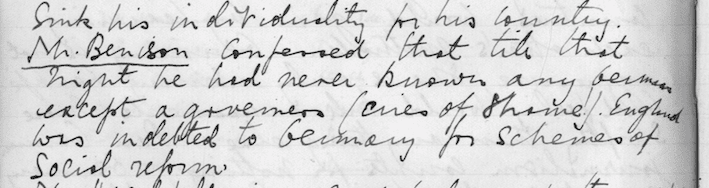 Sink his individuality for his country.
Mr. Benison confessed that till that
night he had never known any German
except a governess (cries of shame!). England
was indebted to Germany for schemes of
Social reform.